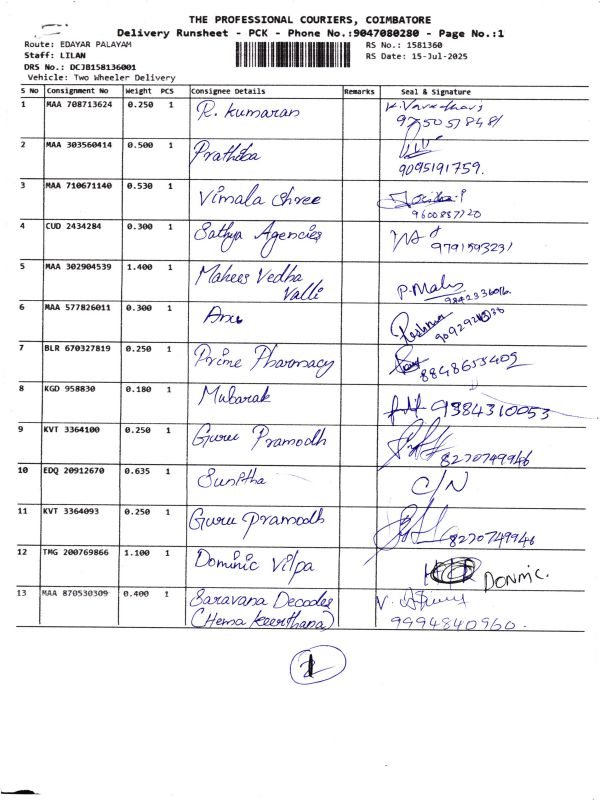 THE PROFESSIONAL COURIERS, COIMBATORE
Delivery Runsheet - PCK - Phone No.:9047080280 - Page No.:1
Route: EDAYAR PALAYAM RS No.: 1581360
Staff: LILAN RS Date: 15-Jul-2025
DRS No.: DCJB158136001
Vehicle: Two Wheeler Delivery
S No Consignment No Weight PCS Consignee Details Remarks Seal & Signature
1 MAA 708713624 0.250 1 R. Kumaran
2 MAA 303560414 0.500 1 Prathiba
9095191759.
3 MAA 710671140 0.530 1 Vimala Shree
9600837720
4 CUD 2434284 0.300 1 Sathya Agencies 9791593231
5 MAA 302904539 1.400 1 Mahees Vedha
Valli P. Mahes
9842336016.
6 MAA 577826011 0.300 1
7 BLR 670327819 0.250 1 Prime Pharmacy
8848655402
8 KGD 958830 0.180 1 Mubarak 9384310053
9 KVT 3364100 0.250 1 Guru Pramodh
8270749946
10 EDQ 20912670 0.635 1 Sunitha C/N
11 KVT 3364093 0.250 1 Guru Pramodh
8270749946
12 TMG 200769866 1.100 1 Dominic Vilpa
DONMIC.
13 MAA 870530309 0.400 1 Saravana Decodes
(Hema Keerthana) 9994840960.